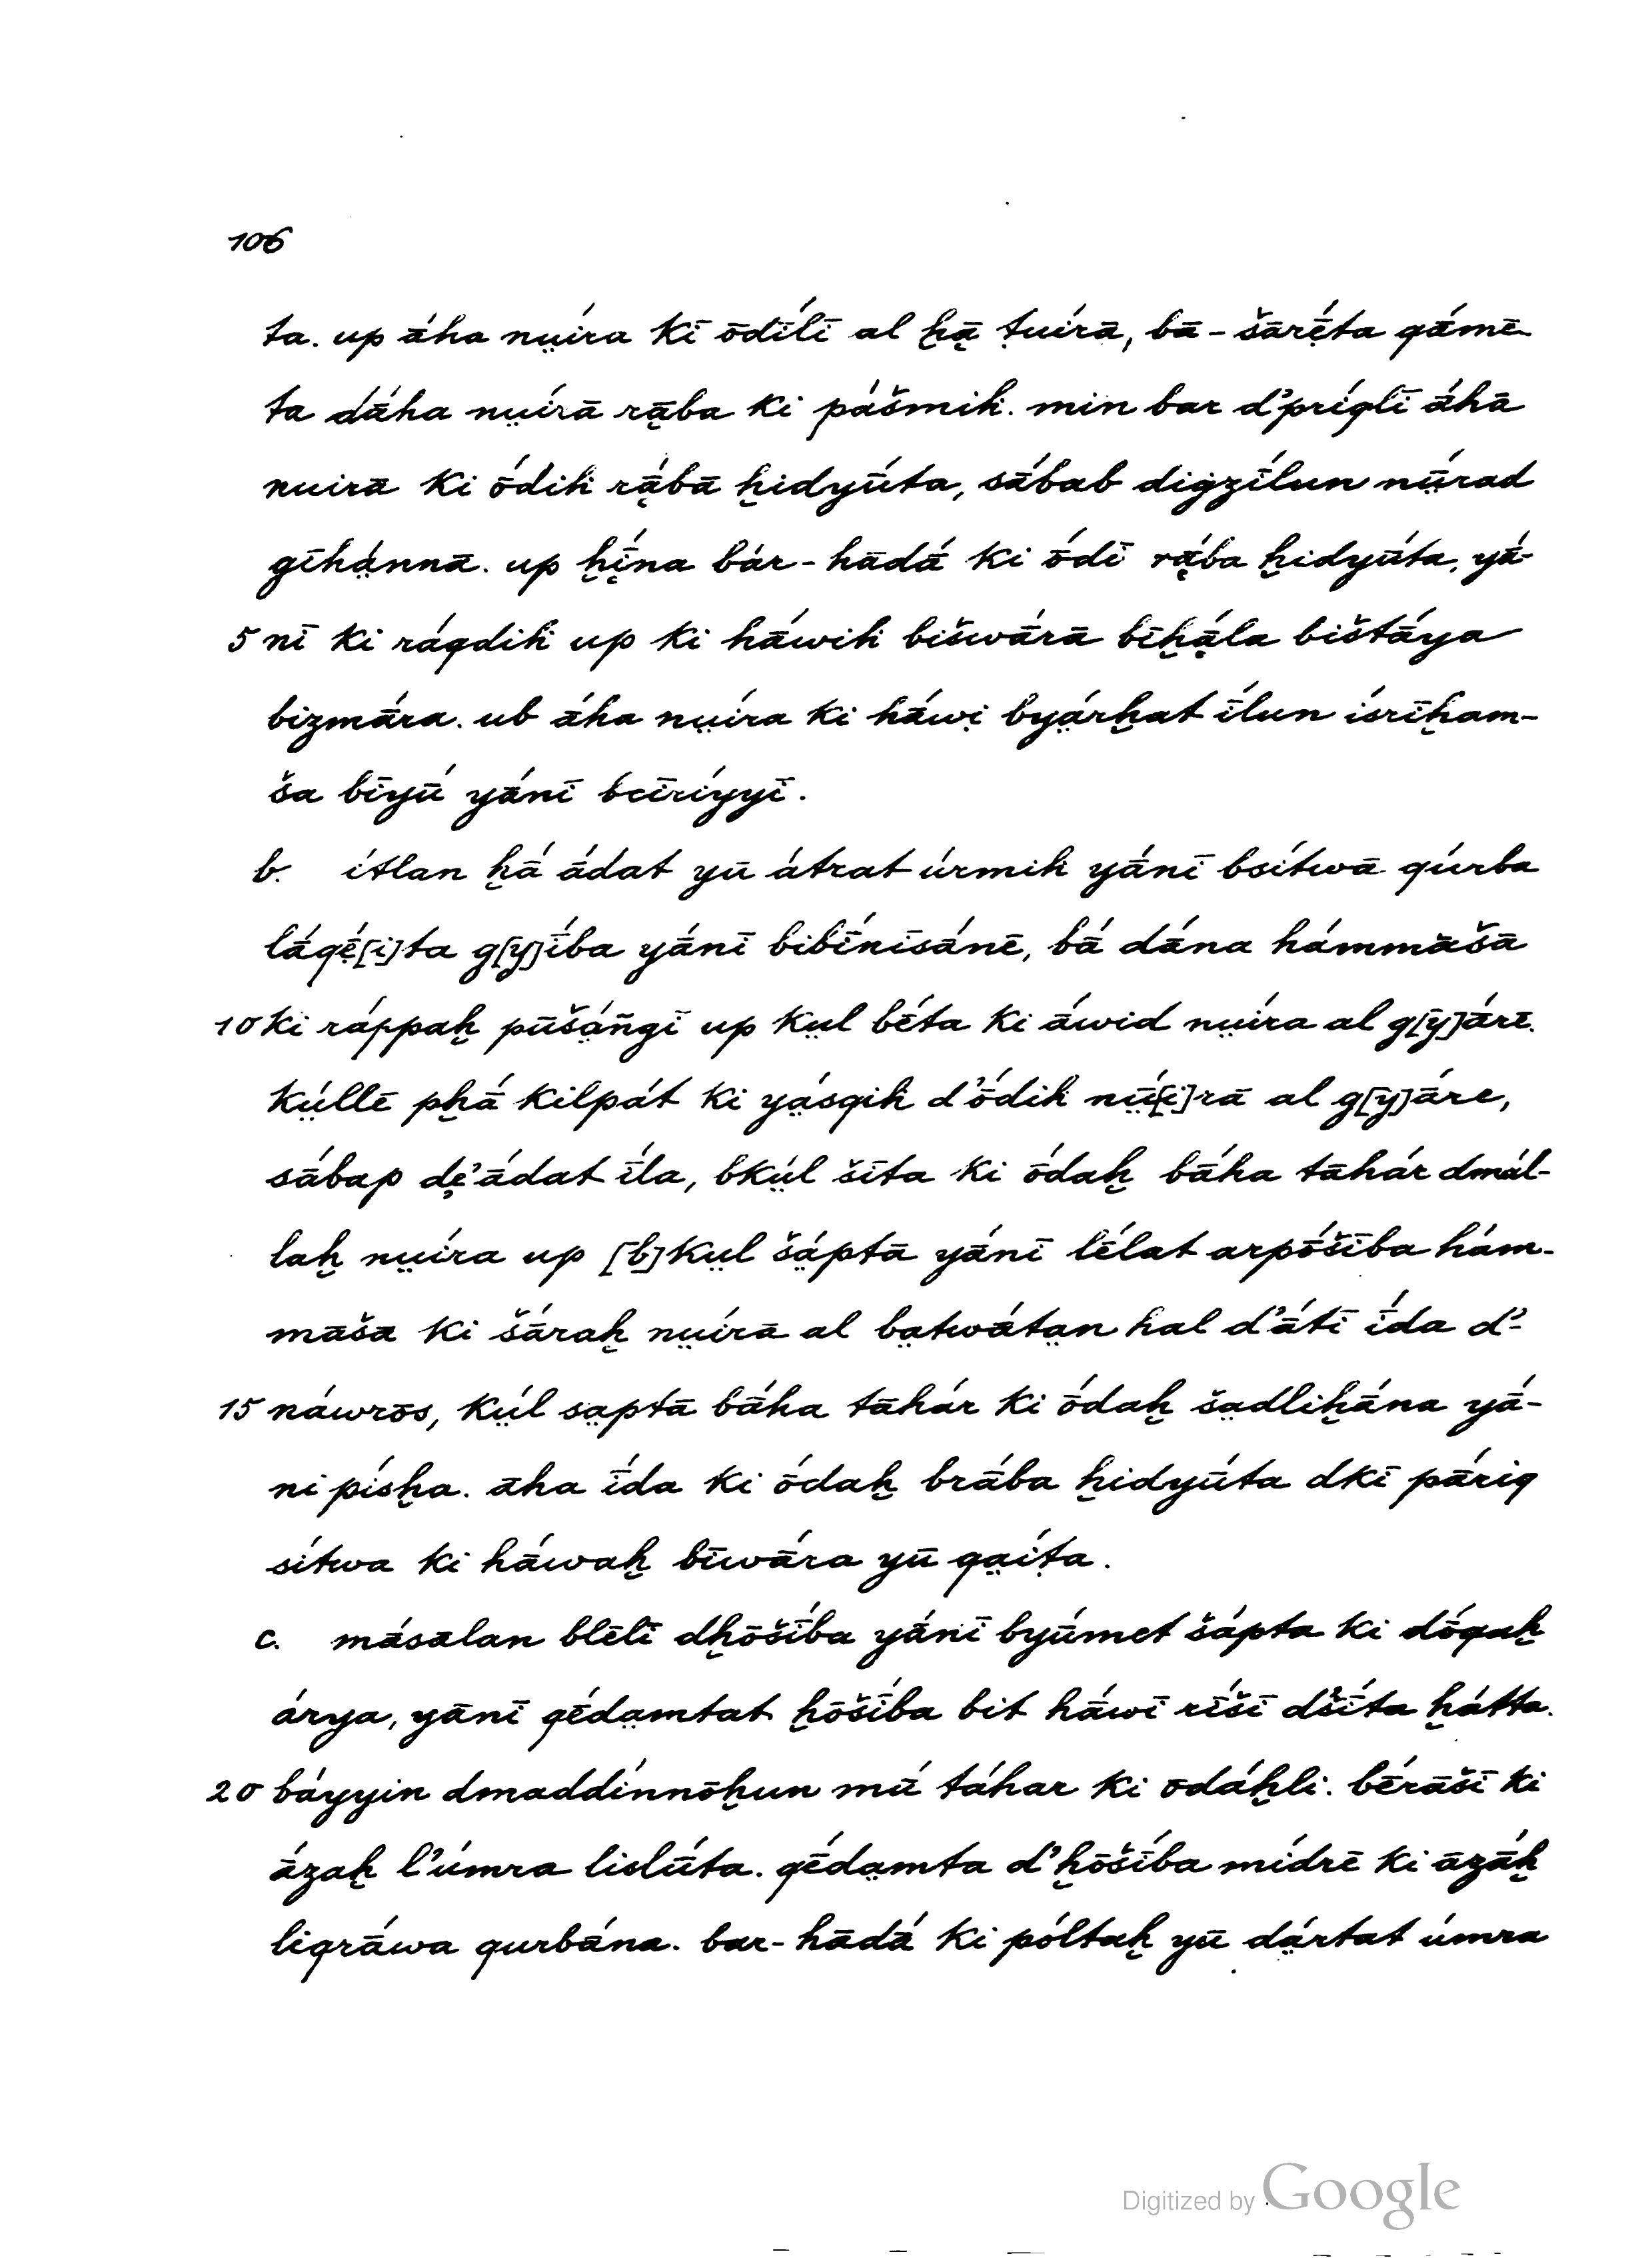 106
ta. up ā́ha nṳíra kī ōdī́lī al ḫā̭ ṭuírā, bā-šārẹ̄́ta qā́mē-
ta dā́ha nṳírā rā̭ba ki pā́šmiḣ. min bar d’príqlī ā́hā
nuirā ki ṓdiḣ rā̭́bā ḫidyū́ta, sā́bab digzī́lun nṳ̄́rad
gīhá̤nnā. up ḫḭ̄́na bár-hādā́ ki ṓdī rā̭́ba ḫidyū́ta, yā́-
5 nī ki ráqdiḣ up ki hā́wiḣ bišwā́rā bīḫā̭́la bištā́ya
bizmā́ra. ub ā́ha nṳíra ki hā́wị byá̤rḫat ī́lun ísrīḫam-
ša bīyū́ yā́nī bcīríyyī.
b. ítlan ḫā́ ā́dat yū átrat úrmiḣ yā́nī bsítwā qúrba
lā́qẹ̄́[i]ta g[y]ī́ba yā́nī bibī́nīsā́nē, bā́ dā́na hámmāšā
10 ki ráppaḫ pūšá̤n̄gī up kṳl bḗta ki ā́wid nṳíra al g[y]ā́rē.
kṳ́llē pḫā́ kilpát ki yá̤sqiḣ d’ṓdiḣ nṳ̄́[i]rā al g[y]ā́re,
sā́bap dẹ’ā́dat ī́la, bkṳ́l šīta ki ṓdaḫ bā́ha tāhár dmál-
laḫ nṳíra up [b]kṳl šá̤ptā yā́nī lḗlat arpṓšība hám-
māša ki šā́raḫ nṳírā al ba̤twā́ta̤n hal d’ā́tī ī́da d’-
15 náwrōs, kṳ́l sa̤ptā bā́ha tāhár ki ṓdaḫ ša̤dliḫā́na yā́-
ni písḫa. āha ī́da ki ṓdaḫ brā́ba ḫidyū́ta dkī pā́riq
sítwa ki hā́waḫ bīwā́ra yū qa̤íṭa.
c. másālan blēlī dḫōšī́ba yā́nī byū́met šápta ki dṓqaḫ
árya, yānī qḗda̤mtat ḫōšī́ba bit hā́wī rī́šī dšī́ta ḫátta.
20 báyyin dmaddínnōḫun mū́ táhar ki ōdáḫli. bḗrāšī ki
ā́zaḫ l’úmra lislū́ta. qḗda̤mta d’ḫōšī́ba mídrē ki āzā́ḫ
liqrā́wa qurbā́na. bar-hādā́ ki póltaḫ yū dá̤rtat úmra
Digitized by Google